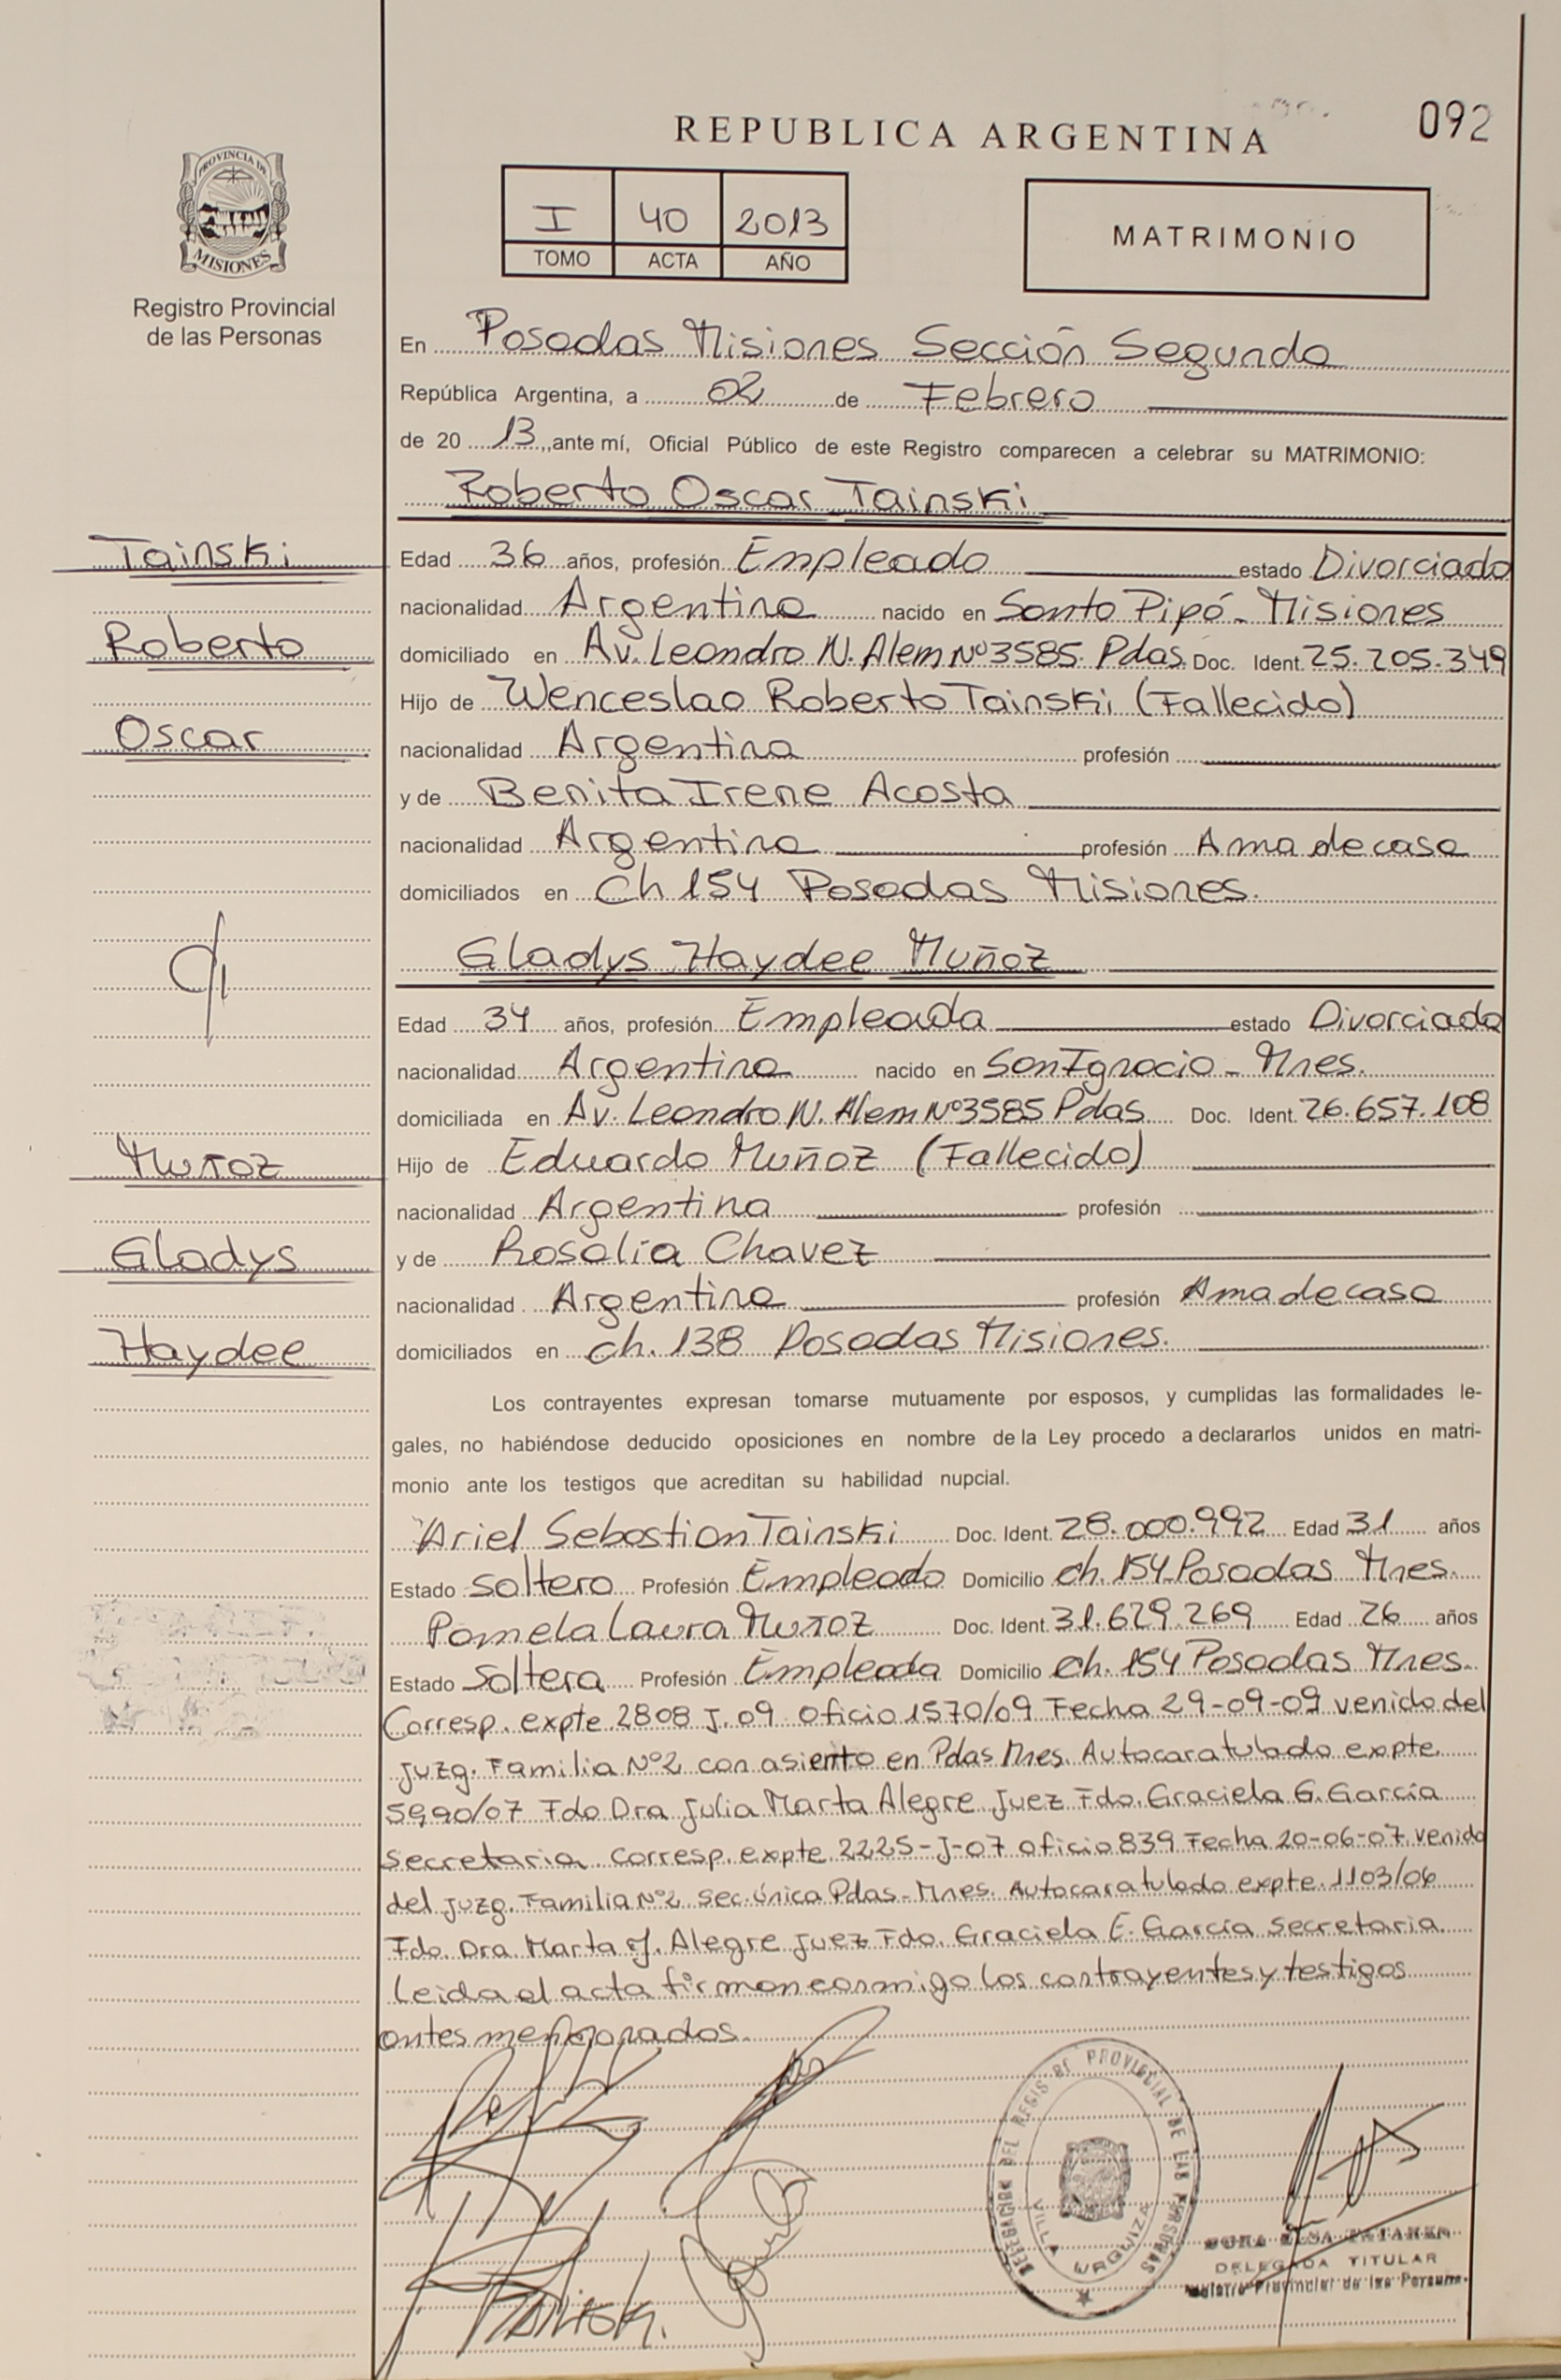 092
REPUBLICA ARGENTINA
PROVINCIA DE
MISIONES
Registro Provincial
de las Personas
I 40 2013
TOMO ACTA AÑO
MATRIMONIO
En Posadas Misiones Sección Segunda
República Argentina, a 02 de Febrero
de 20 13, ante mí, Oficial Público de este Registro comparecen a celebrar su MATRIMONIO:
Roberto Oscar Tainski
Tainski
Roberto
Oscar
Edad 36 años, profesión Empleado estado Divorciado
nacionalidad Argentina nacido en Santo Pipó - Misiones
domiciliado en Av. Leandro N. Alem Nº 3585 Pdas. Doc. Ident. 25.205.349
Hijo de Wenceslao Roberto Tainski (Fallecido)
nacionalidad Argentina profesión
y de Benita Irene Acosta
nacionalidad Argentina profesión Ama de casa
domiciliados en Ch 154 Posadas Misiones.
Gladys Haydee Muñoz
Muñoz
Gladys
Haydee
Edad 34 años, profesión Empleada estado Divorciada
nacionalidad Argentina nacido en San Ignacio - Mnes.
domiciliada en Av. Leandro N. Alem Nº 3585 Pdas Doc. Ident. 26.657.108
Hijo de Eduardo Muñoz (Fallecido)
nacionalidad Argentina profesión
y de Rosalia Chavez
nacionalidad Argentina profesión Ama de casa
domiciliados en ch. 138 Posadas Misiones.
Los contrayentes expresan tomarse mutuamente por esposos, y cumplidas las formalidades le-
gales, no habiéndose deducido oposiciones en nombre de la Ley procedo a declararlos unidos en matri-
monio ante los testigos que acreditan su habilidad nupcial.
Ariel Sebastian Tainski Doc. Ident. 28.000.992 Edad 31 años
Estado Soltero Profesión Empleado Domicilio ch. 154 Posadas Mnes.
Pamela Laura Muñoz Doc. Ident. 31.629.269 Edad 26 años
Estado Soltera Profesión Empleada Domicilio ch. 154 Posadas Mnes.
Corresp. expte 2808 J. 09 Oficio 1570/09 Fecha 29-09-09 venido del
Juzg. Familia Nº 2 con asiento en Pdas Mnes. Autocaratulado expte.
5990/07 Fdo Dra Julia Marta Alegre Juez Fdo. Graciela G. García
Secretaria. Corresp. expte 2225-J-07 Oficio 839 Fecha 20-06-07 venido
del Juzg. Familia Nº 2 Sec. única Pdas - Mnes. Autocaratulado expte. 1103/06
Fdo. Dra Marta J. Alegre Juez Fdo. Graciela E. García Secretaria.
Leida el acta firman conmigo los contrayentes y testigos
antes mencionados.
DELEGACION DEL REGISTRO PROVINCIAL DE LAS PERSONAS
VILLA URQUIZA
DELEGADA TITULAR
Registro Provincial de las Personas